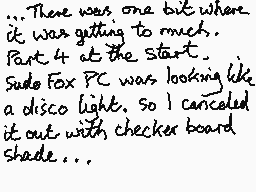 ...There was one bit where
it was getting to much.
Part 4 at the start.
Sudo Fox PC was looking like
a disco light. so I canceled
it out with checker board
shade...